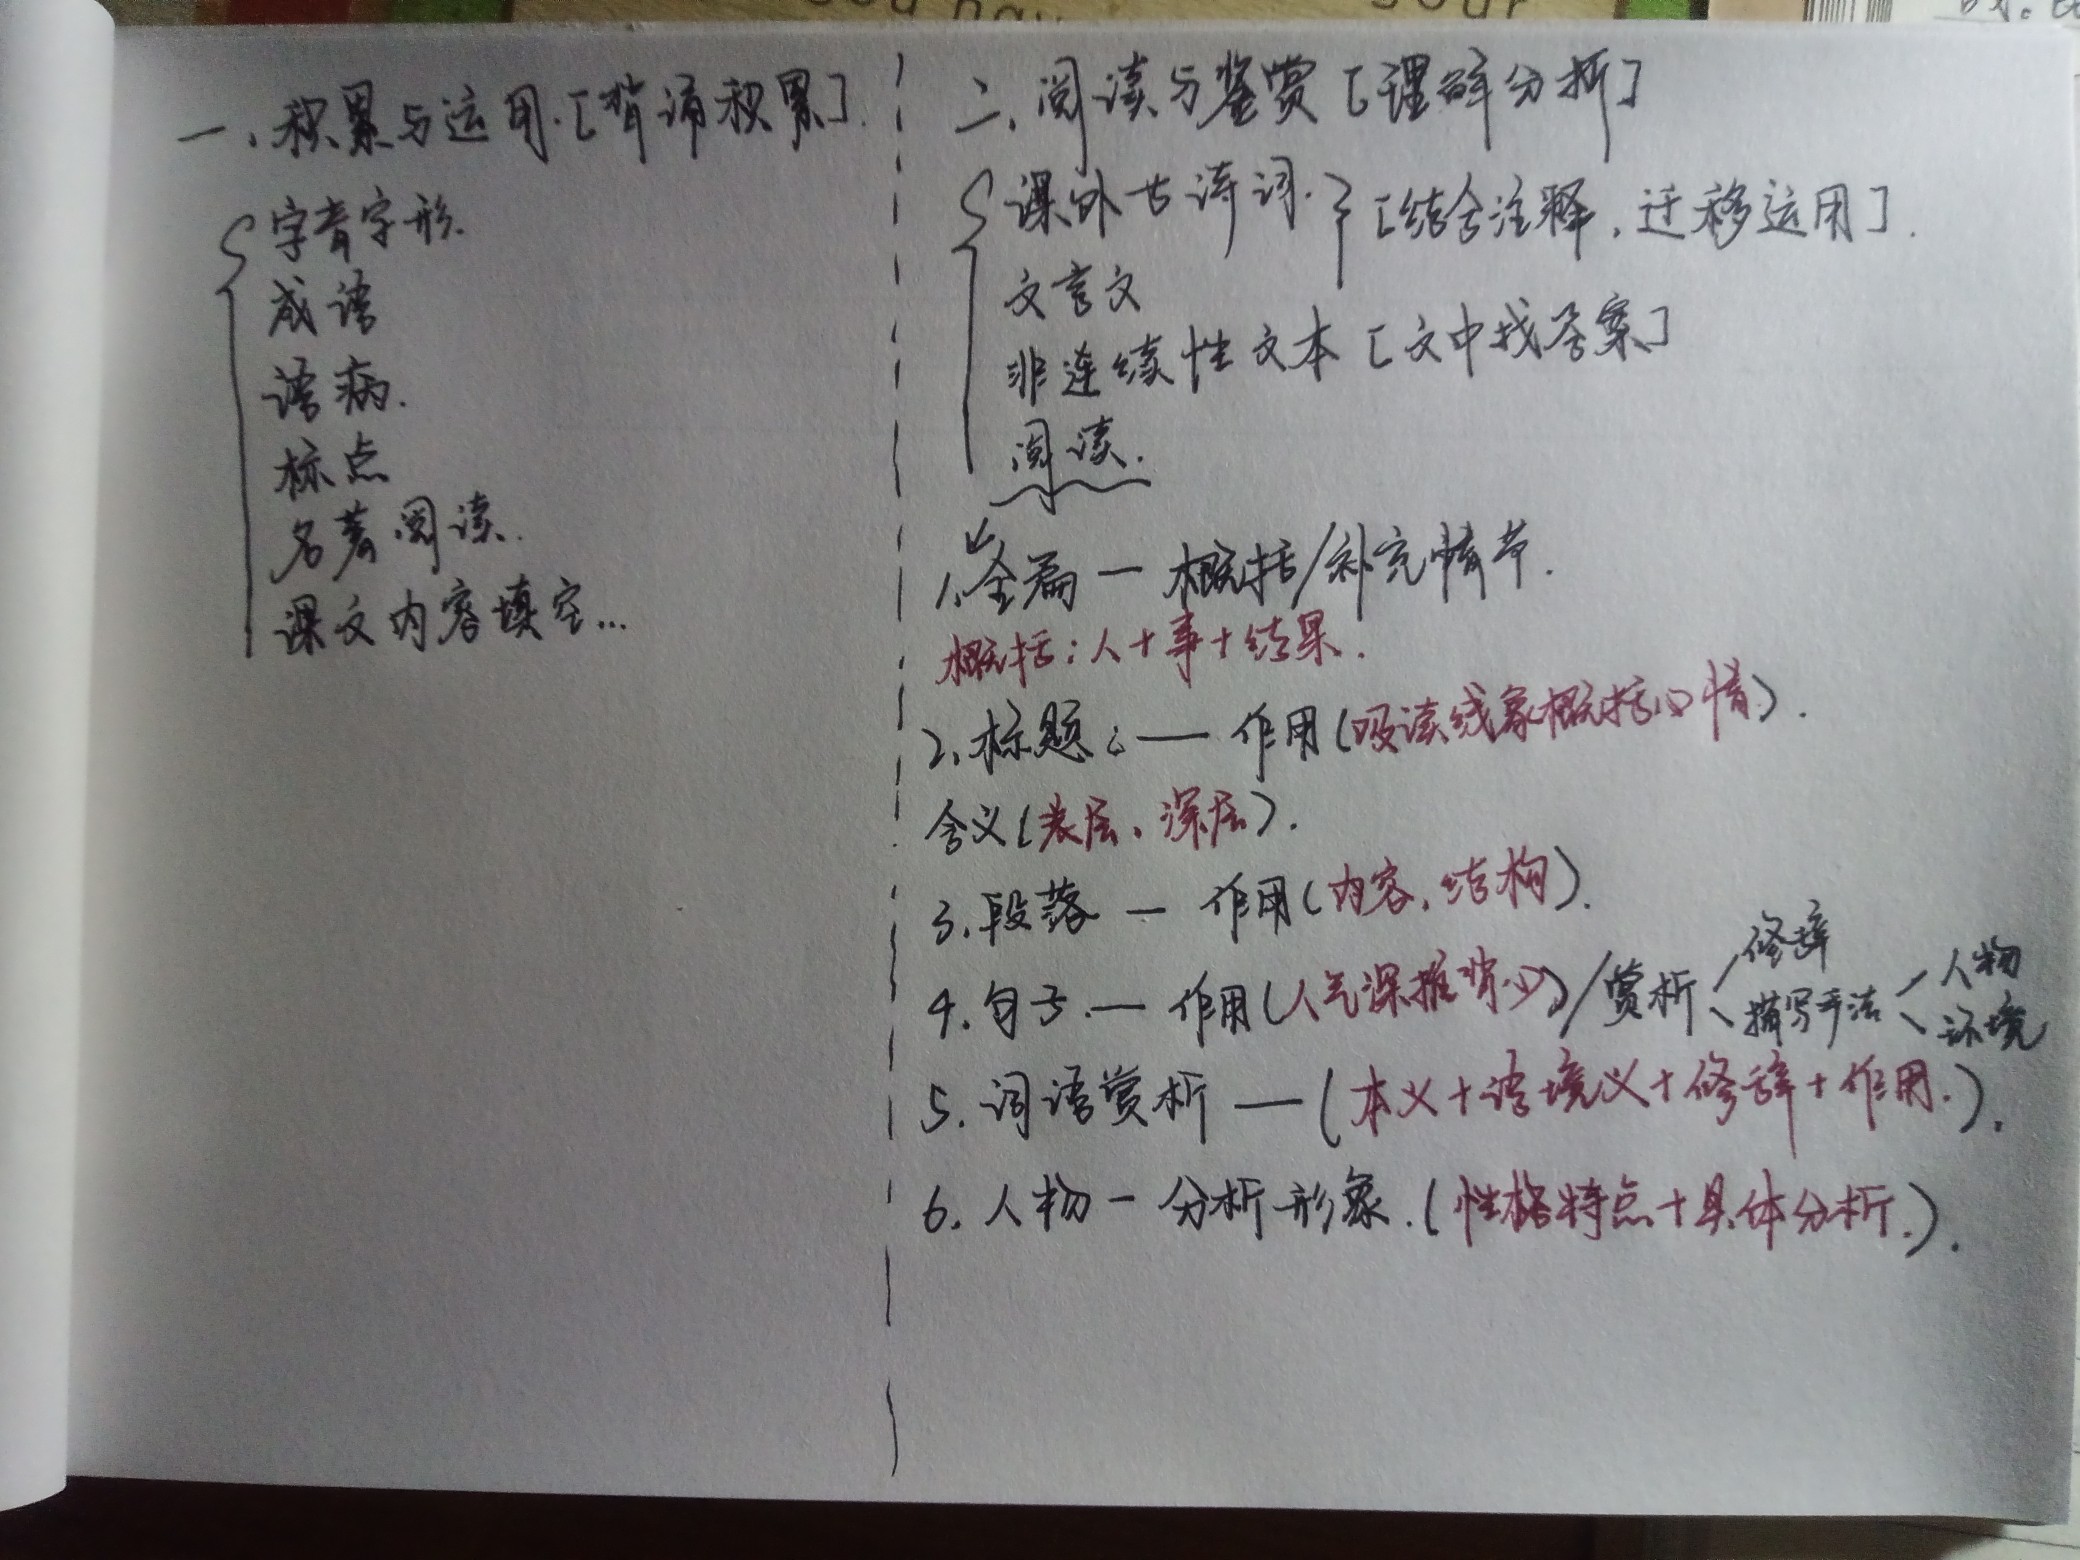 your
一、积累与运用.[背诵积累].
字音字形.
成语
语病.
标点
名著阅读.
课文内容填空...
二、阅读与鉴赏[理解分析]
课外古诗词.}[结合注释,迁移运用].
文言文
非连续性文本[文中找答案]
阅读.
1.全篇—概括/补充情节.
概括:人+事+结果.
2.标题:—作用(吸读线象概括心情).
含义(表层、深层).
3.段落—作用(内容,结构).
4.句子.—作用(人气深推背心)/赏析
修辞
描写手法
人物
环境
5.词语赏析—(本义+语境义+修辞+作用.).
6.人物—分析形象.(性格特点+具体分析.).